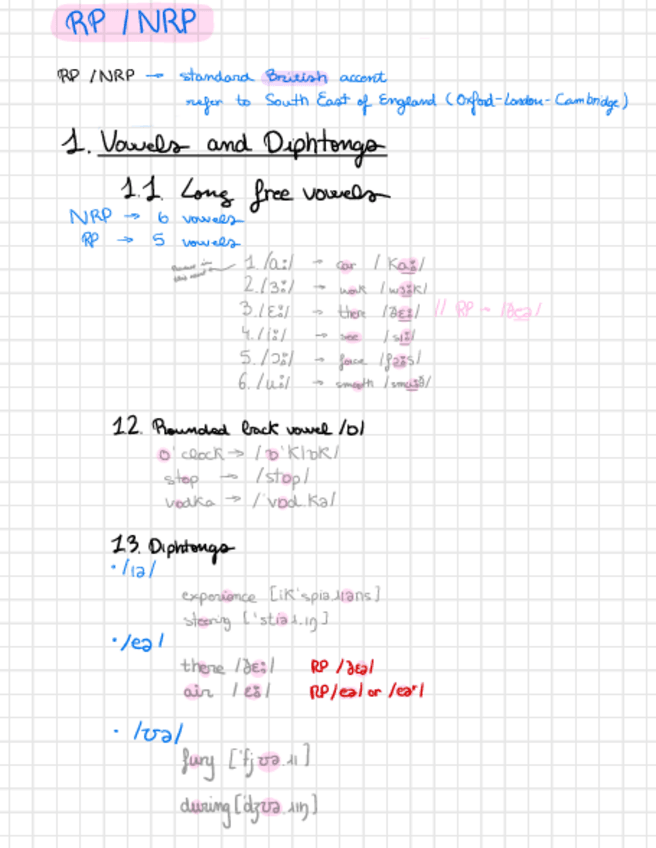 RP / NRP
RP / NRP → standard British accent
refer to South East of England (Oxford-London-Cambridge)
1. Vowels and Diphtongs
1.1. Long free vowels
NRP → 6 vowels
RP → 5 vowels
1. /ɑː/ → car /kɑː/
2. /ɜː/ → work /wɜːk/
3. /ɛː/ → there /ðɛː/ // RP → /ðeə/
4. /iː/ → see /siː/
5. /ɔː/ → force /fɔːs/
6. /uː/ → smooth /smuːð/
1.2. Rounded back vowel /ɒ/
o'clock → /ɒ'klɒk/
stop → /stɒp/
vodka → /'vɒd.kə/
1.3. Diphtongs
· /ɪə/
experience [ik'spiə.ɹiəns]
steering ['stiəɹ.ɪŋ]
· /eə/
there /ðɛː/ RP /ðeə/
air /ɛː/ RP /eə/ or /eəʳ/
· /ʊə/
fury ['fjʊə.ɹi]
during [ˈdʒʊə.ɹɪŋ]